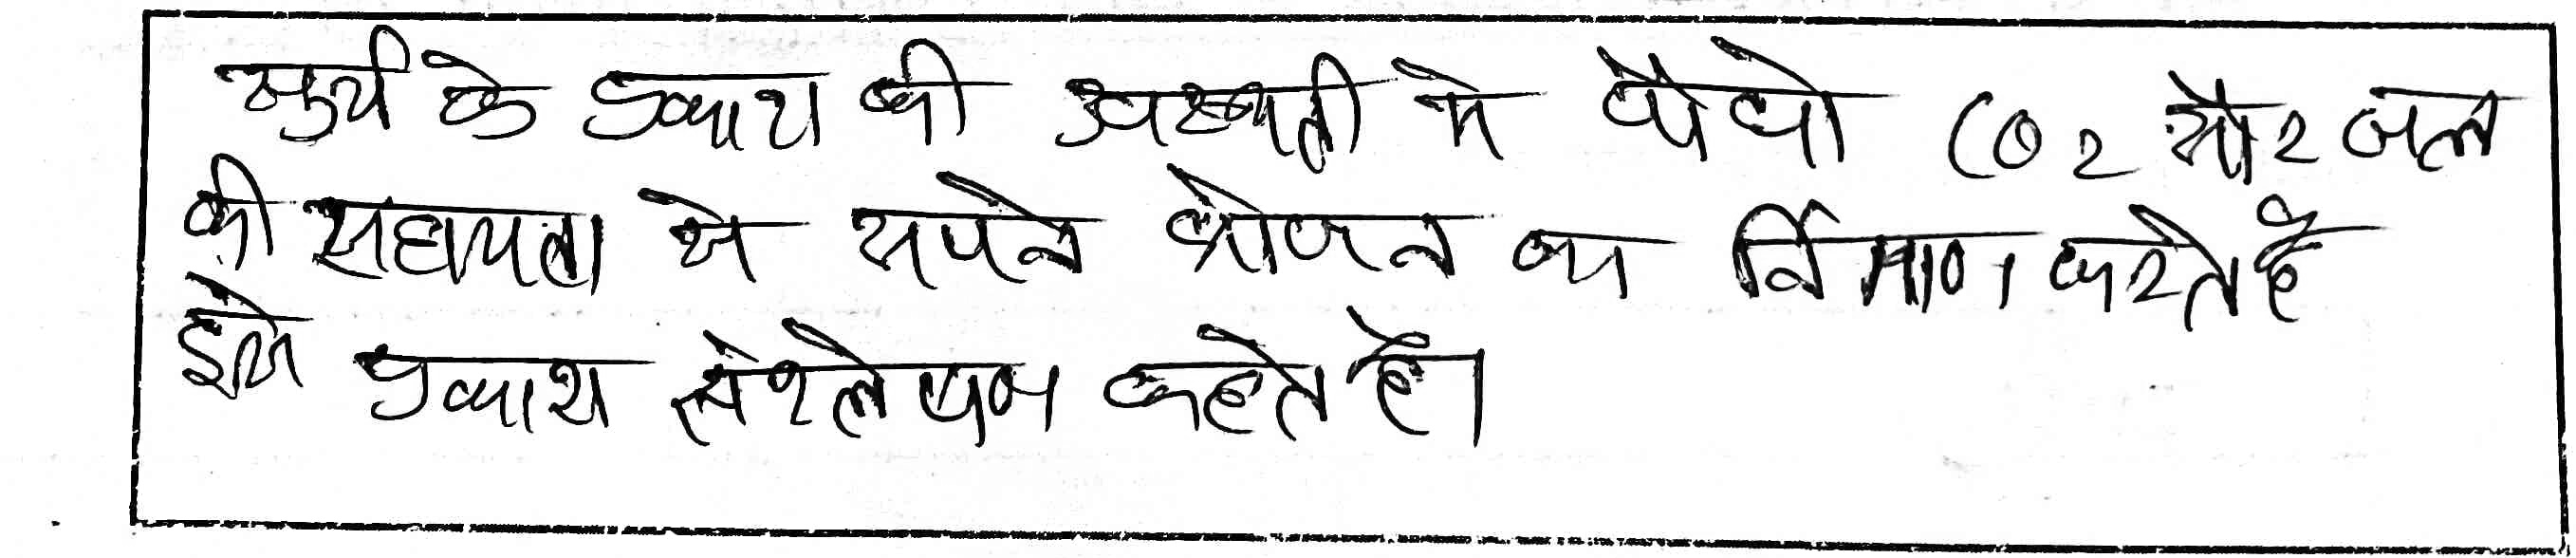 सुर्य के प्रकाश की उपस्थती मे पौधो CO2 और जल
की सहायता से अपने भोजन का र्निमाण करते है
इसे प्रकाश संश्लेषण कहते है।